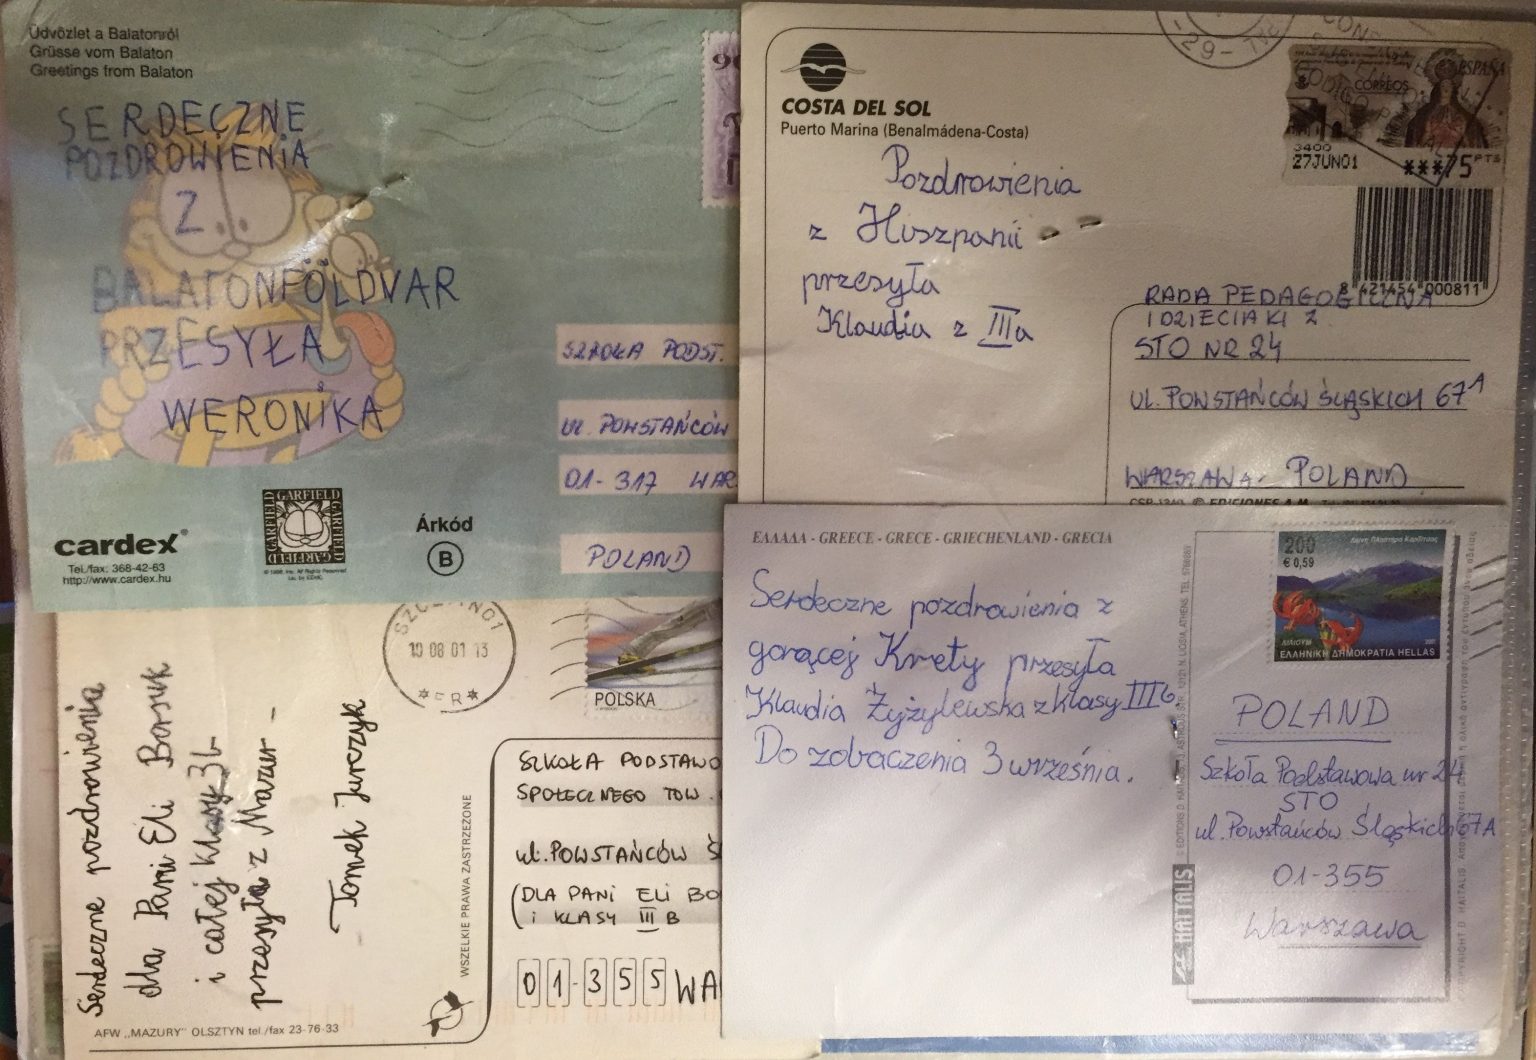 Üdvözlet a Balatonról
Grüsse vom Balaton
Greetings from Balaton
SERDECZNE
POZDROWIENIA
Z
BALATONFÖLDVAR
PRZESYŁA
WERONIKA
cardex®
Tel./fax: 368-42-63
http://www.cardex.hu
GARFIELD
GARFIELD
GARFIELD
GARFIELD
Árkód
B
SZKOŁA PODST.
UL. POWSTAŃCÓW
01-317 WAR
POLAND
COSTA DEL SOL
Puerto Marina (Benalmádena-Costa)
Pozdrowienia
z Hiszpanii
przesyła
Klaudia z IIIa
ESPAÑA
CORREOS
3400
27JUN01
***75 PTS
8 421454 000811
RADA PEDAGOGICZNA
I DZIECIAKI Z
STO NR 24
UL. POWSTAŃCÓW ŚLĄSKICH 67A
WARSZAWA - POLAND
Serdeczne pozdrowienia
dla Pani Eli Borsuk
i całej klasy 3b
przesyła z Mazur -
Tomek Jurczyk
AFW „MAZURY" OLSZTYN tel./fax 23-76-33
WSZELKIE PRAWA ZASTRZEŻONE
10 08 01 13
POLSKA
SZKOŁA PODSTAWO
SPOŁECZNEGO TOW.
ul. POWSTAŃCÓW Ś
(DLA PANI ELI BO
i KLASY III B
01-355 WA
ΕΛΛΑΔΑ - GREECE - GRECE - GRIECHENLAND - GRECIA
Serdeczne pozdrowienia z
gorącej Krety przesyła
Klaudia Żyżylewska z klasy IIIb.
Do zobaczenia 3 września.
HAITALIS
200
€ 0,59
ΕΛΛΗΝΙΚΗ ΔΗΜΟΚΡΑΤΙΑ HELLAS
POLAND
Szkoła Podstawowa nr 24
STO
ul. Powstańców Śląskich 67A
01-355
Warszawa